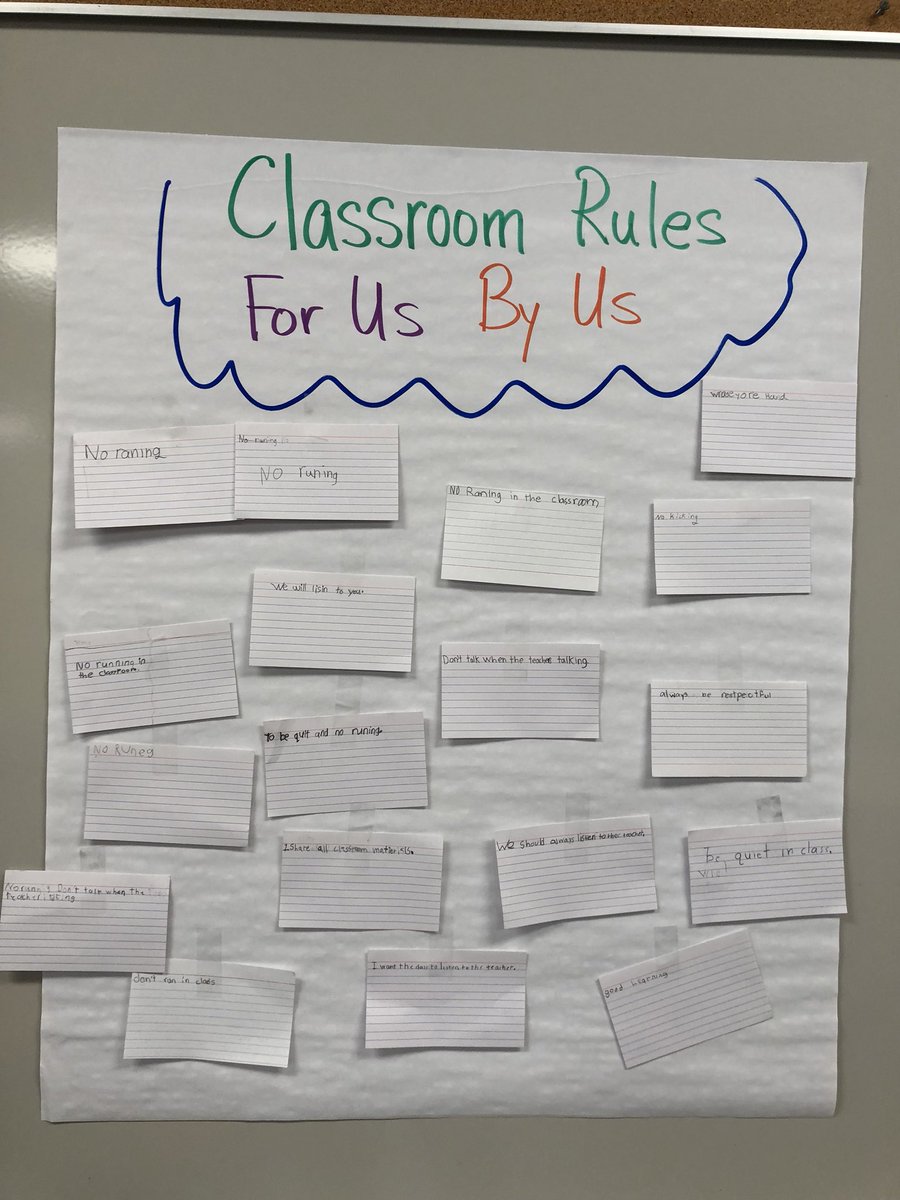 Classroom Rules
For Us By Us
wrase yore Hand
No raning
No runing
NO runing
NO Raning in the classroom
No kicking
We will lisin to you.
NO running in
the classroom.
Don't talk when the teacher talking.
always be restpectful
NO RUNeg
To be quit and no runing.
I Share all classroom
We should always listen to the teacher.
be, quiet in class.
Don't talk when the
teacher is
don't ran in class
I want the class to listen to the teacher.
good learning